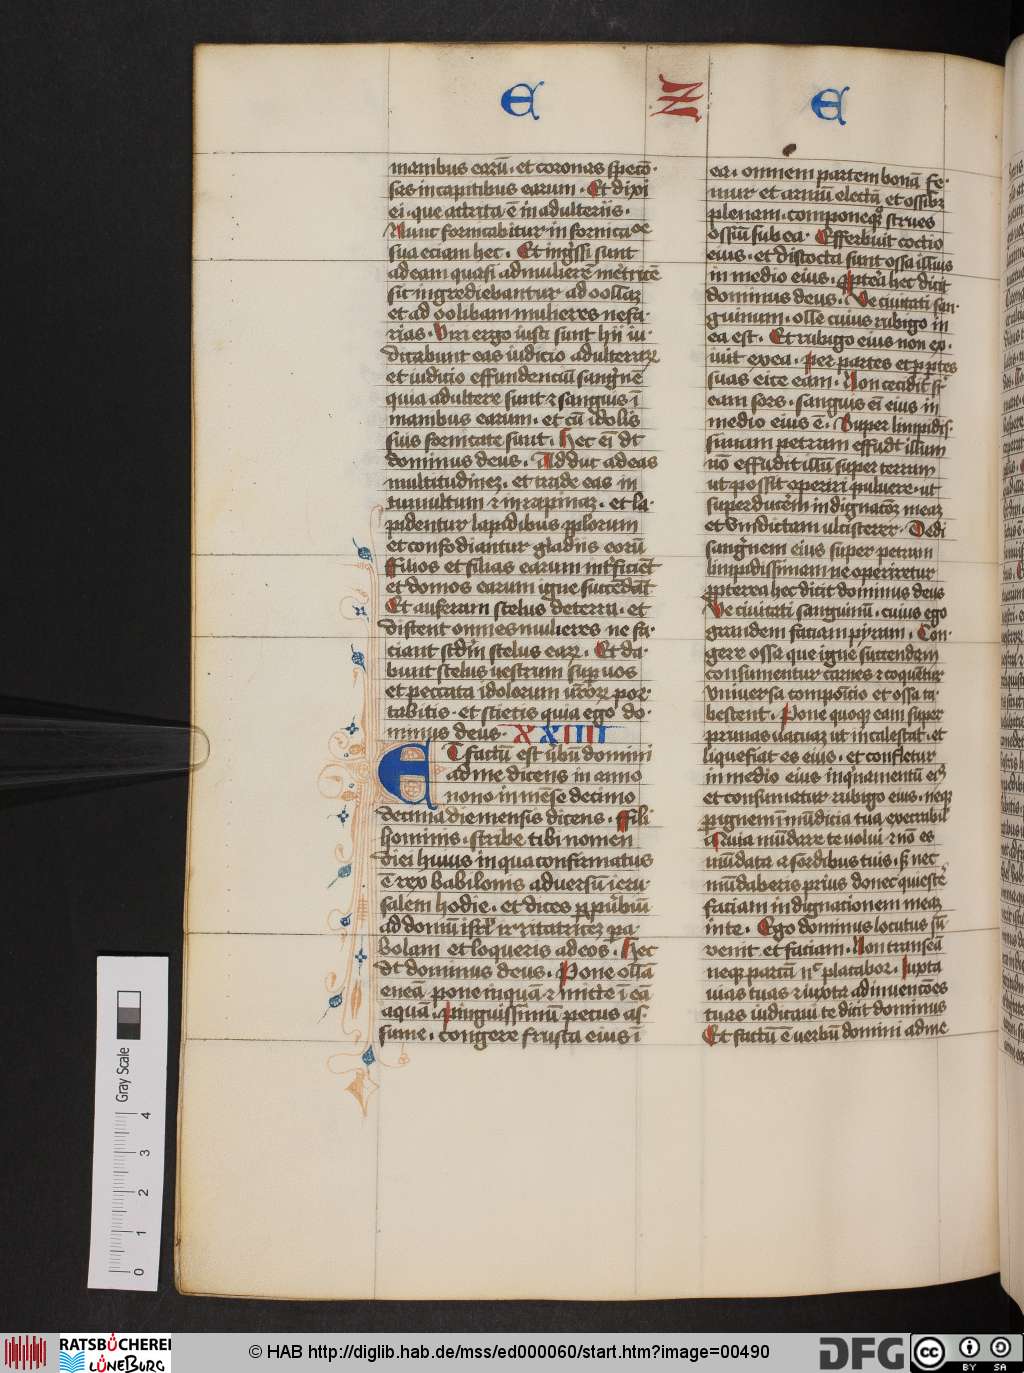 E Z E
manibus earū · et coronas specō·
sas in capitibus earum · Et dixi
ei · que attrita ē in adulteriis ·
Nunc fornicabitur in fornicacōe
sua eciam hec · Et ingssi sunt
ad eam quasi ad mulierē metricē
sic ingrediebantur ad oollaz
et ad oolibam mulieres nefa-
rias · Viri ergo iusti sunt hii iu-
dicabunt eas iudicio adulteraꝝ
et iudicio effundenciū sangnē
quia adultere sunt ⁊ sanguis ī
manibus earum · et cū idolis
suis fornicate sunt · Hec eī dt
dominus deus · Adduc ad eas
multitudinez · et trade eas in
tumultum ⁊ in rapinaz · et la-
pidentur lapidibus pplorum
et confodiantur gladiis eorū
Filios et filias earum interficiēt
et domos earum igne succedāt
Et auferam scelus de terra · et
discent omnes mulieres ne fa-
ciant scdm scelus eaꝝ · Et da-
bunt scelus uestrum sup uos
et peccata idolorum uroꝝ por-
tabitis · et scietis quia ego do-
minus deus · XXIIII
ET factū est ubū domini
ad me dicens in anno
nono in mēse decimo
decima die mensis dicens · Fili
hominis · scribe tibi nomen
diei huius in qua confirmatus
ē rex babilonis aduersū ieru-
salem hodie · et dices p pubiū
ad domū isrl irritatricez pa-
bolam et loqueris ad eos · Hec
dt dominus deus · Pone ollā
eneā pone inquā ⁊ mitte ī eā
aquā · Pinguissimū pecus as-
sume · congere frusta eius ī
ea · omnem partem bonā fe-
mur et armū electā et ossibꝫ
plenam · componeqꝫ strues
ossiū sub ea · Efferbuit coctio
eius · et discocta sunt ossa illius
in medio eius · Pptea hec dicit
dominus deus · Ve ciuitati san-
guinum · olle cuius rubigo in
ea est · Et rubigo eius non ex-
iuit ex ea · Per partes et p ptes
suas eice eam · Non cecidit sr
eam sors · sanguis eī eius in
medio eius ē · Super limpidis-
simam petram effudt illum
nō effudit illū super terram
ut possit operiri puluere · ut
superducerē indignacōz meaz
et vindictam ulciscerer · Dedi
sangnem eius super petram
limpidissimam ne operiretur
ppterea hec dicit dominus deus
Ve ciuitati sanguinū · cuius ego
grandem faciam pyram · Con-
gere ossa que igne succendam
consumentur carnes ⁊ coquetur
vniuersa composicio et ossa ta-
bescent · Pone quoqꝫ eam super
prunas uacuaz ut incalescat · et
liquefiat es eius · et confletur
in medio eius inquinamentū eiꝰ
et consumatur rubigo eius · neqꝫ
p ignem īmūdicia tua execrabil
Quia mūdare te uolui ⁊ nō es
mūdata a sordibus tuis · sꝫ nec
mūdaberis prius donec quiescē
faciam indignationem meaz
in te · Ego dominus locutus sū
veniet et faciam · Non transeā
neqꝫ parcā nc placabor · Iuxta
uias tuas ⁊ iuxta adinuencōes
tuas iudicaui te dicit dominus
Et factū ē uerbū domini ad me
Gray Scale
0 1 2 3 4
RATSBÜCHEREI
LÜNEBURG
© HAB http://diglib.hab.de/mss/ed000060/start.htm?image=00490
DFG
cc BY SA